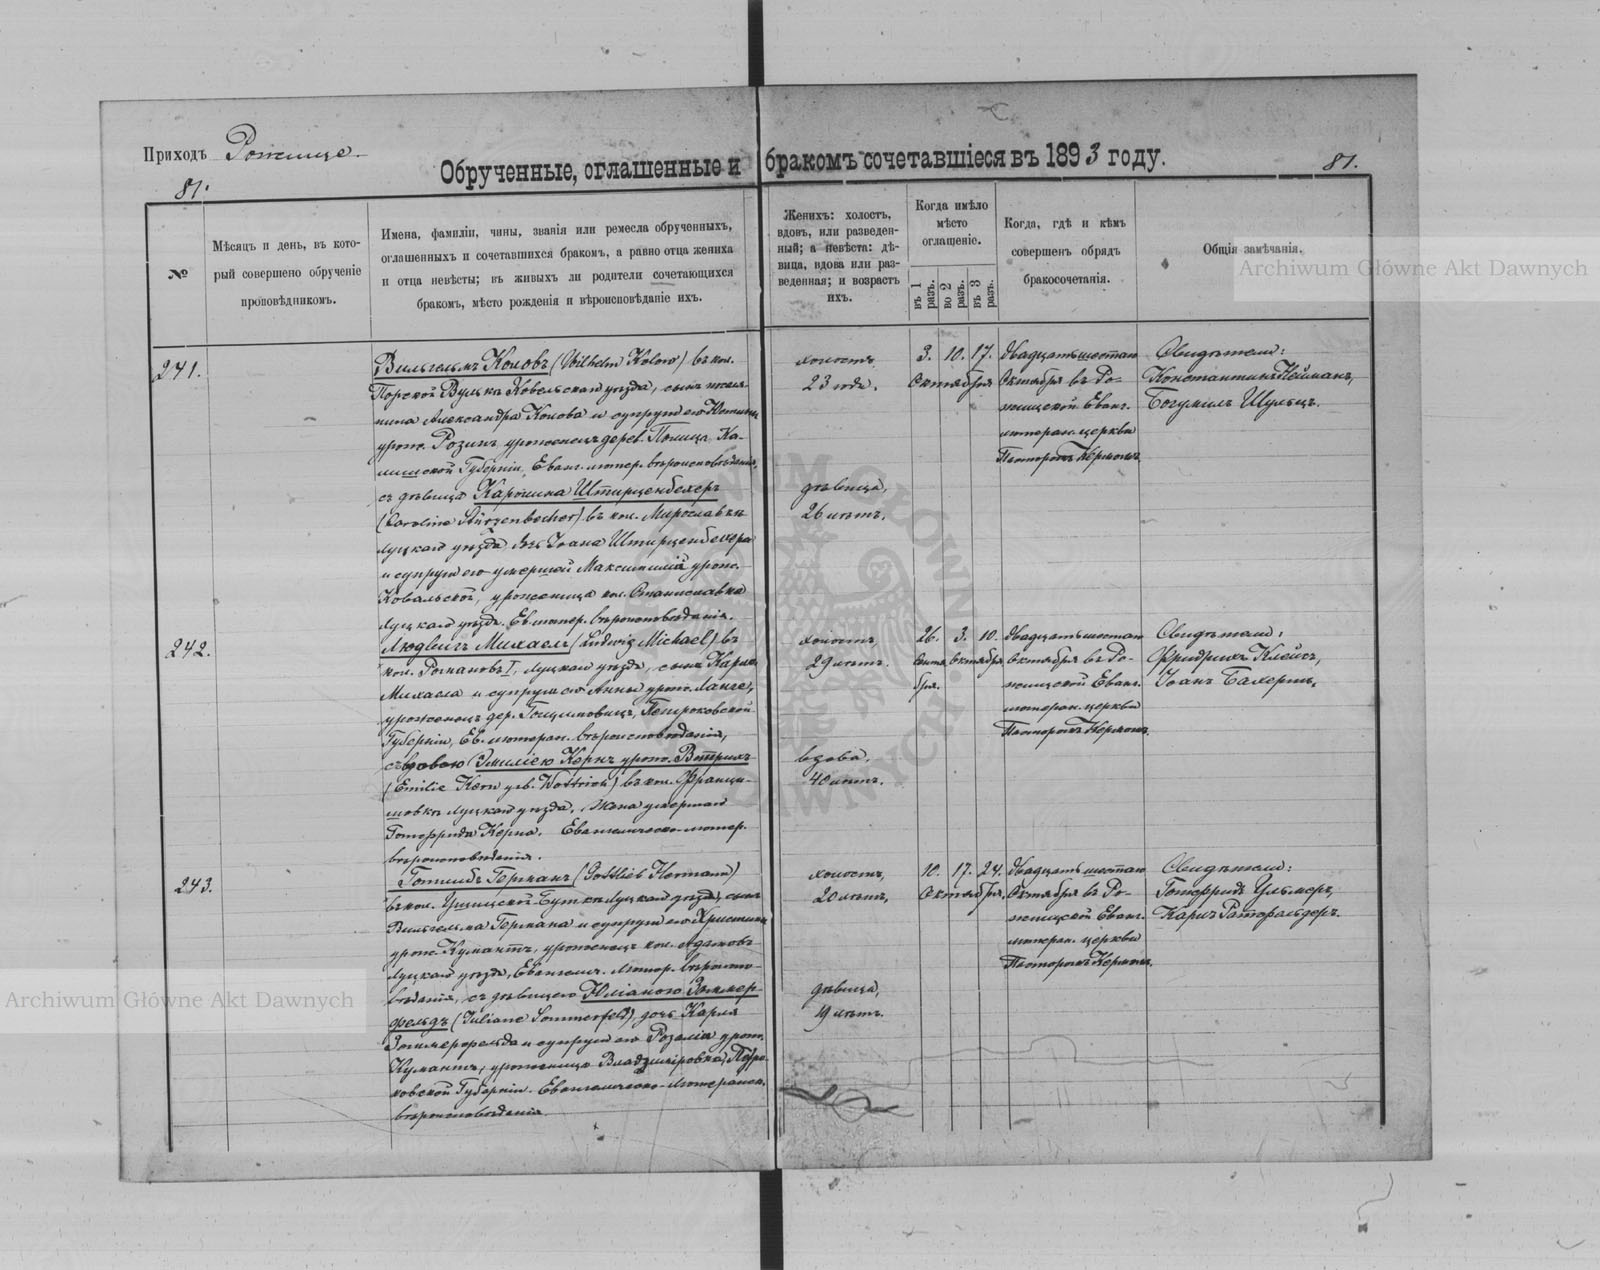 Приходъ Рожище.
Обрученные, оглашенные и бракомъ сочетавшіеся въ 1893 году.
81.
81.
№
Мѣсяцъ и день, въ кото-
рый совершено обрученіе
проповѣдникомъ.
Имена, фамиліи, чины, званія или ремесла обрученныхъ,
оглашенныхъ и сочетавшихся бракомъ, а равно отца жениха
и отца невѣсты; въ живыхъ ли родители сочетающихся
бракомъ, мѣсто рожденія и вѣроисповѣданіе ихъ.
Женихъ: холостъ,
вдовъ, или разведен-
ный; а невѣста: дѣ-
вица, вдова или раз-
веденная; и возрастъ
ихъ.
Когда имѣло
мѣсто
оглашеніе.
въ 1 разъ.
во 2 разъ.
въ 3 разъ.
Когда, гдѣ и кѣмъ
совершенъ обрядъ
бракосочетанія.
Общія замѣчанія.
Archiwum Główne Akt Dawnych
241.
Вильгельмъ Коловъ (Wilhelm Kolow) въ кол.
Порской Вулькѣ Ковельскаго уѣзда, сынъ поселя-
нина Александра Колова и супруги его Юстины
урож. Розинъ, уроженецъ дерев. Поница Ка-
лишской Губерніи, Еванг. лютер. вѣроисповѣданія,
съ дѣвица Каролина Штирценбехеръ
(Caroline Stürzenbecher) въ кол. Мирославкѣ
Луцкаго уѣзда дочь Іоана Штирценбехера
и супруги его умершей Максимиліи урож.
Ковальской, уроженица кол. Станиславка
Луцкаго уѣзд. Ев. лютер. вѣроисповѣданія.
холостъ
23 года.
дѣвица,
26 лѣтъ.
3. 10. 17.
Октября
Двадцать шестаго
Октября въ Ро-
жищской Еванг.
лютеран. церкви
Пасторомъ Керномъ.
Свидѣтели:
Константинъ Нейманъ,
Богумилъ Шульцъ.
242.
Людвигъ Михаелъ (Ludwig Michael) въ
кол. Рожановъ I, Луцкаго уѣзда, сынъ Карла
Михаела и супруги его Анны урож. Ланге,
уроженецъ дер. Гощимовицъ, Петроковской
Губерніи, Ев. лютеран. вѣроисповѣданія,
съ вдовою Эмиліею Кернъ урож. Вотрихъ
(Emilie Kern geb. Wottrich) въ кол. Франци-
шовкѣ Луцкаго уѣзда. Жена умершаго
Готфрида Керна. Евангелическо-лютер.
вѣроисповѣданія.
холостъ
29 лѣтъ.
вдова,
40 лѣтъ.
26. 3. 10.
Сентя- Октября
бря.
Двадцать шестаго
Октября въ Ро-
жищской Еванг.
лютеран. церкви
Пасторомъ Керномъ.
Свидѣтели:
Фридрихъ Клейсъ,
Іоанъ Бахертъ.
243.
Готлибъ Германъ (Gottlieb Hermann)
въ кол. Луцкаго уѣзда, сынъ
Вильгельма Германа и супруги его Христины
урож. Кумантъ, уроженецъ кол. Адамовъ
Луцкаго уѣзда, Евангелич. лютер. вѣроиспо-
вѣданія, съ дѣвицею Юліаною Зоммер-
фельдъ (Juliane Sommerfeld), дочь Карла
Зоммерфельда и супруги его Розаліи урож.
Кумантъ, уроженица Владиміровка, Петро-
ковской Губерніи. Евангелическо-лютеранск.
вѣроисповѣданія.
холостъ,
20 лѣтъ,
дѣвица,
19 лѣтъ.
10. 17. 24.
Октября.
Двадцать шестаго
Октября въ Ро-
жищской Еванг.
лютеран. церкви
Пасторомъ Керномъ.
Свидѣтели:
Готфридъ Ульмеръ,
Карлъ Ратфальдеръ.
Archiwum Główne Akt Dawnych